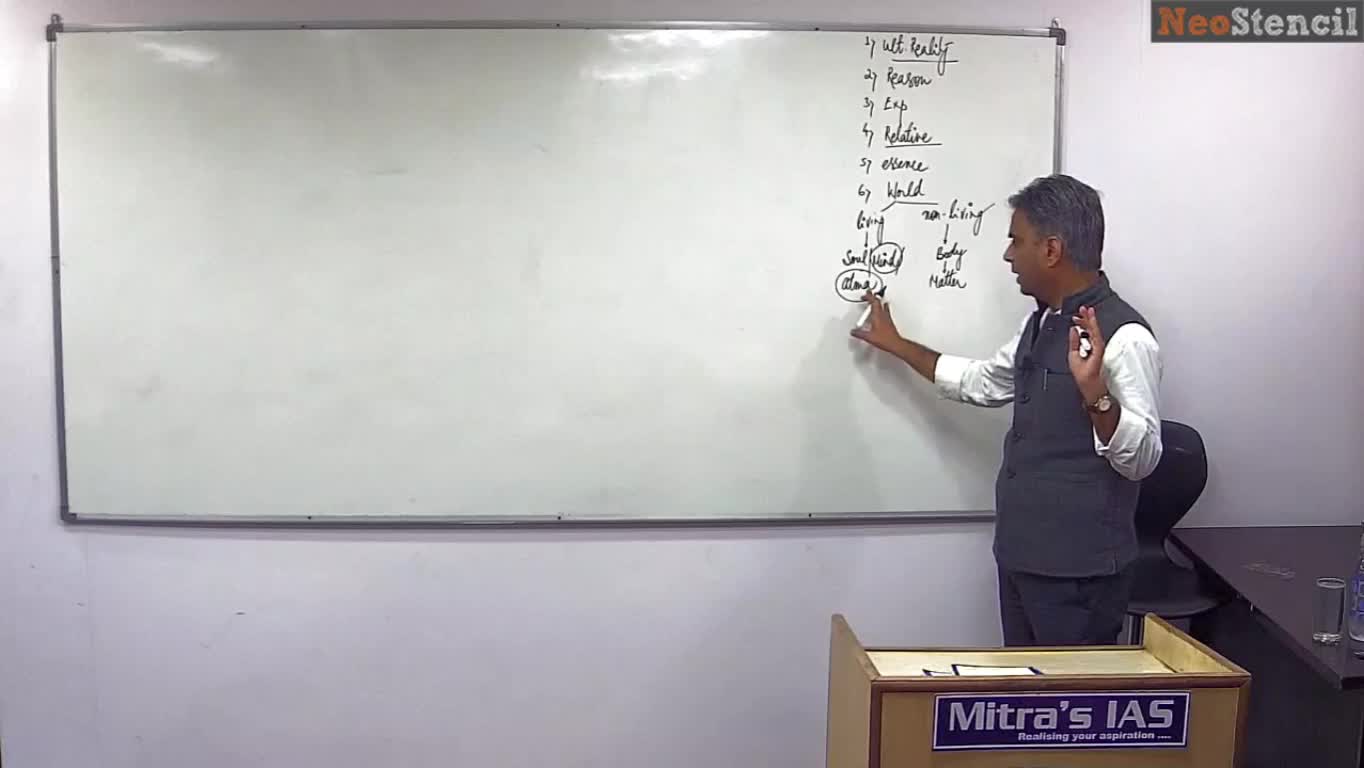 NeoStencil
1) Ult. Reality
2) Reason
3) Exp
4) Relative
5) essence
6) World
living non-living
Soul/Mind Body
Atma Matter
Mitra's IAS
Realising your aspiration ....